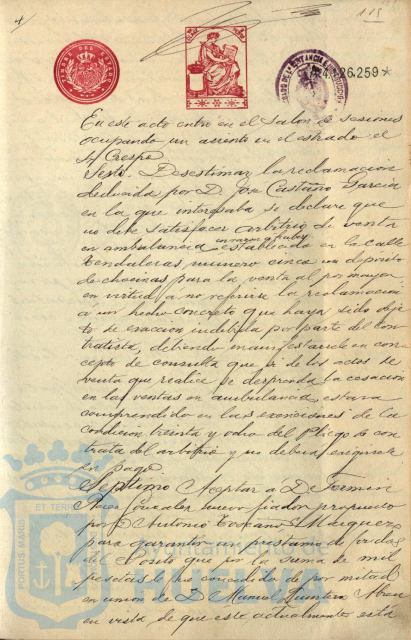 4
115
4.126.259*
En este acto entra en el salon de sesiones
ocupando un asiento en el estrado el
Sr Crespo
Sesto. Desestimar la reclamacion
deducida por D. Jose Castaño Garcia
en la que interesaba se declare que
no debe satisfacer arbitrio de venta
en ambulancia establecido en la calle
Rendaleras numero cinco un deposito
de chacinas para la venta al por mayor
en virtud a no referirse la reclamacion
a un hecho concreto que haya sido obje
to de exaccion indebida por parte del Con
tratista, debiendo manifestarsele en con
cepto de consulta que si de los actos de
venta que realice se desprenda la cesacion
en las ventas en ambulancia, estara
comprendido en las exenciones de la
condicion treinta y ocho del Pliego de con
trata del arbitrio y no debera exigirsele
su pago
Septimo Aceptar á D. Fermin
Gonzalez nuevo fiador propuesto
por D Antonio Marquez
para garantir un prestamo de
Posito que por la suma de mil
pesetas le fue concedido por mitad
en union de D. Manuel Quintero
en vista de que este actualmente está
PORTUS MARIS
ET TERR
Ayuntamiento de
HUELVA